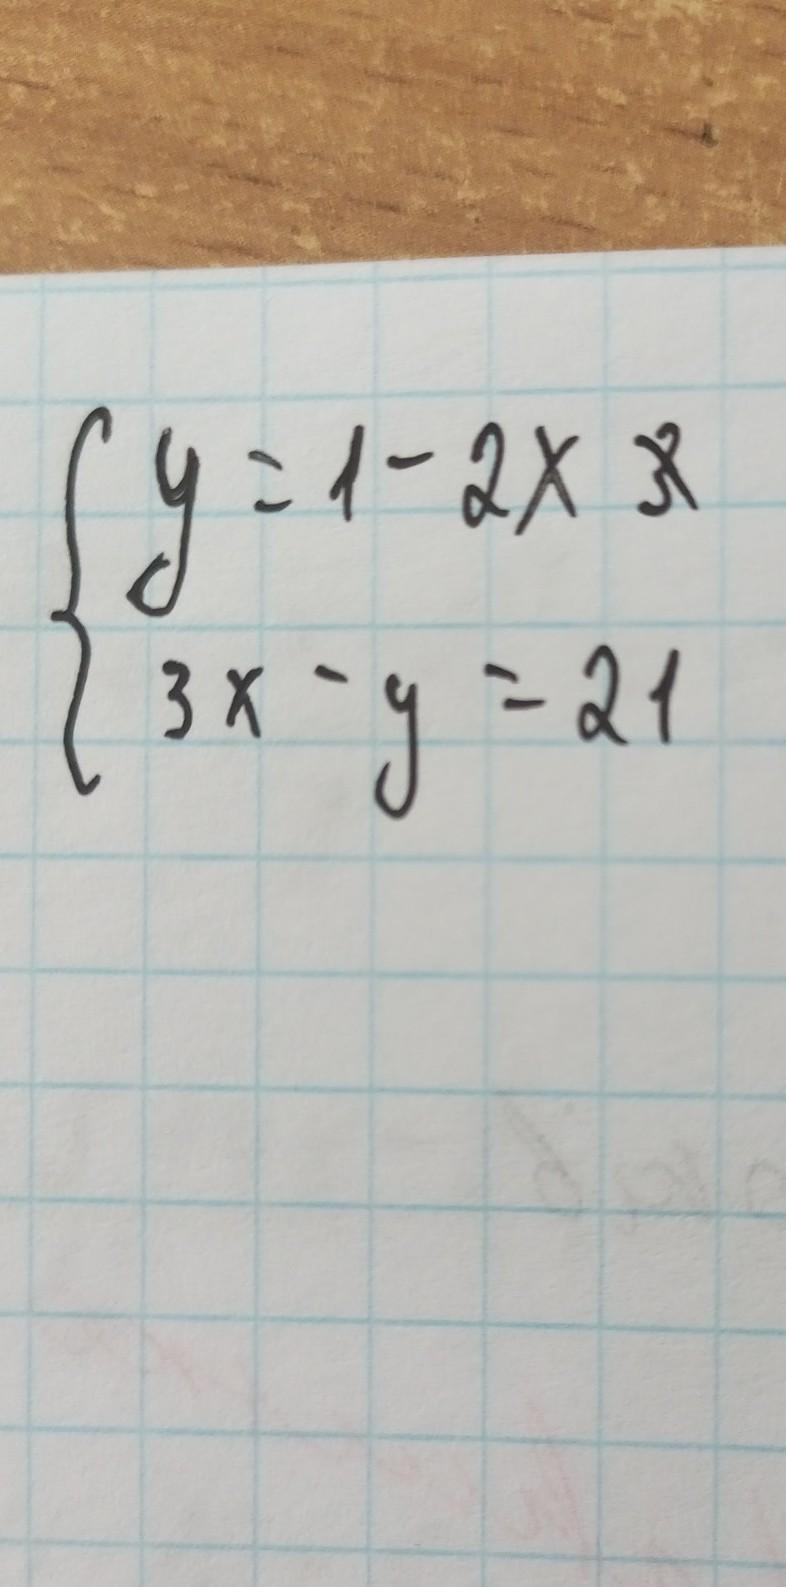 y = 1 - 2x
3x - y = 21